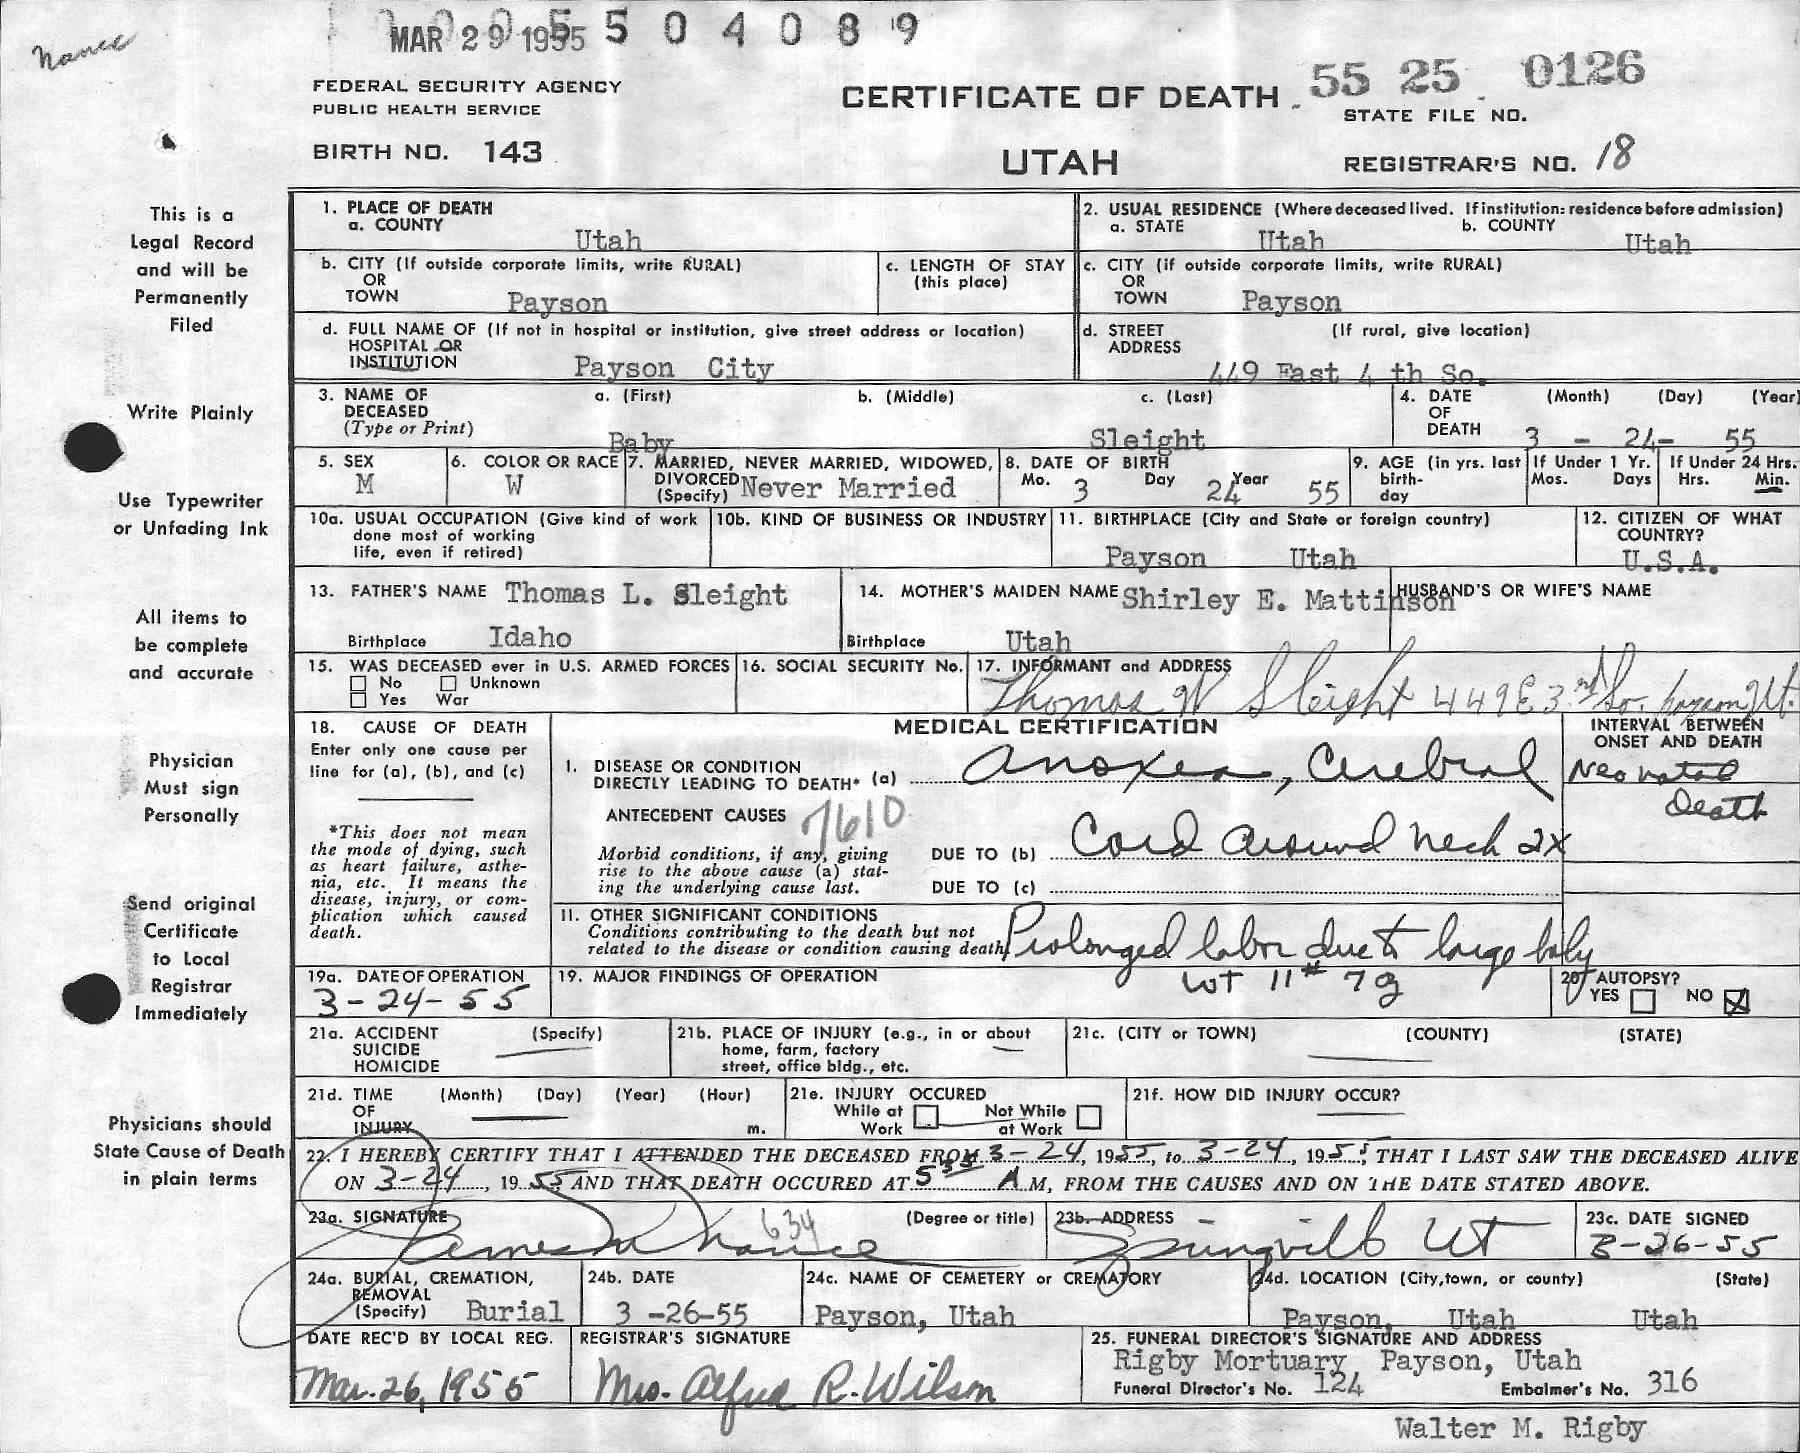 Nance
MAR 29 1955 5 0 4 0 8 9
FEDERAL SECURITY AGENCY
PUBLIC HEALTH SERVICE
BIRTH NO. 143
CERTIFICATE OF DEATH
UTAH
55 25 0126
STATE FILE NO.
REGISTRAR'S NO. 18
This is a
Legal Record
and will be
Permanently
Filed
Write Plainly
Use Typewriter
or Unfading Ink
All items to
be complete
and accurate
Physician
Must sign
Personally
Send original
Certificate
to Local
Registrar
Immediately
Physicians should
State Cause of Death
in plain terms
1. PLACE OF DEATH
a. COUNTY
Utah
2. USUAL RESIDENCE (Where deceased lived. If institution: residence before admission)
a. STATE Utah b. COUNTY Utah
b. CITY (If outside corporate limits, write RURAL)
OR
TOWN Payson
c. LENGTH OF STAY
(this place)
c. CITY (if outside corporate limits, write RURAL)
OR
TOWN Payson
d. FULL NAME OF (If not in hospital or institution, give street address or location)
HOSPITAL OR
INSTITUTION Payson City
d. STREET (If rural, give location)
ADDRESS
449 East 4 th So.
3. NAME OF DECEASED (Type or Print)
a. (First) b. (Middle) c. (Last)
Baby Sleight
4. DATE OF DEATH (Month) (Day) (Year)
3 - 24- 55
5. SEX
M
6. COLOR OR RACE
W
7. MARRIED, NEVER MARRIED, WIDOWED,
DIVORCED
(Specify) Never Married
8. DATE OF BIRTH
Mo. 3 Day 24 Year 55
9. AGE (in yrs. last
birth-
day
If Under 1 Yr.
Mos. Days
If Under 24 Hrs.
Hrs. Min.
10a. USUAL OCCUPATION (Give kind of work
done most of working
life, even if retired)
10b. KIND OF BUSINESS OR INDUSTRY
11. BIRTHPLACE (City and State or foreign country)
Payson Utah
12. CITIZEN OF WHAT
COUNTRY?
U.S.A.
13. FATHER'S NAME Thomas L. Sleight
Birthplace Idaho
14. MOTHER'S MAIDEN NAME Shirley E. Mattinson
Birthplace Utah
HUSBAND'S OR WIFE'S NAME
15. WAS DECEASED ever in U.S. ARMED FORCES
No Unknown
Yes War
16. SOCIAL SECURITY No.
17. INFORMANT and ADDRESS
Thomas W Sleight 449 E 3rd So. Payson Ut.
18. CAUSE OF DEATH
Enter only one cause per
line for (a), (b), and (c)
*This does not mean
the mode of dying, such
as heart failure, asthe-
nia, etc. It means the
disease, injury, or com-
plication which caused
death.
MEDICAL CERTIFICATION
INTERVAL BETWEEN
ONSET AND DEATH
Neonatal
Death
1. DISEASE OR CONDITION
DIRECTLY LEADING TO DEATH* (a) Anoxea, Cerebral
ANTECEDENT CAUSES 7610
Morbid conditions, if any, giving
rise to the above cause (a) stat-
ing the underlying cause last.
DUE TO (b) Cord around neck 2x
DUE TO (c)
11. OTHER SIGNIFICANT CONDITIONS
Conditions contributing to the death but not
related to the disease or condition causing death
Prolonged labor due to large baby
wt 11# 7 g
19a. DATE OF OPERATION
3-24-55
19. MAJOR FINDINGS OF OPERATION
20. AUTOPSY?
YES NO
21a. ACCIDENT (Specify)
SUICIDE
HOMICIDE
21b. PLACE OF INJURY (e.g., in or about
home, farm, factory
street, office bldg., etc.
21c. (CITY or TOWN) (COUNTY) (STATE)
21d. TIME (Month) (Day) (Year) (Hour)
OF
INJURY m.
21e. INJURY OCCURED
While at Not While
Work at Work
21f. HOW DID INJURY OCCUR?
22. I HEREBY CERTIFY THAT I ATTENDED THE DECEASED FROM 3-24, 1955, to 3-24, 1955, THAT I LAST SAW THE DECEASED ALIVE
ON 3-24, 1955 AND THAT DEATH OCCURED AT 5 A M, FROM THE CAUSES AND ON THE DATE STATED ABOVE.
23a. SIGNATURE 634 (Degree or title)
Nance
23b. ADDRESS
Springville Ut
23c. DATE SIGNED
3-26-55
24a. BURIAL, CREMATION,
REMOVAL
(Specify) Burial
24b. DATE
3 -26-55
24c. NAME OF CEMETERY or CREMATORY
Payson, Utah
24d. LOCATION (City, town, or county) (State)
Payson, Utah Utah
DATE REC'D BY LOCAL REG.
Mar. 26, 1955
REGISTRAR'S SIGNATURE
Mrs. Alfred R. Wilson
25. FUNERAL DIRECTOR'S SIGNATURE AND ADDRESS
Rigby Mortuary Payson, Utah
Funeral Director's No. 124 Embalmer's No. 316
Walter M. Rigby